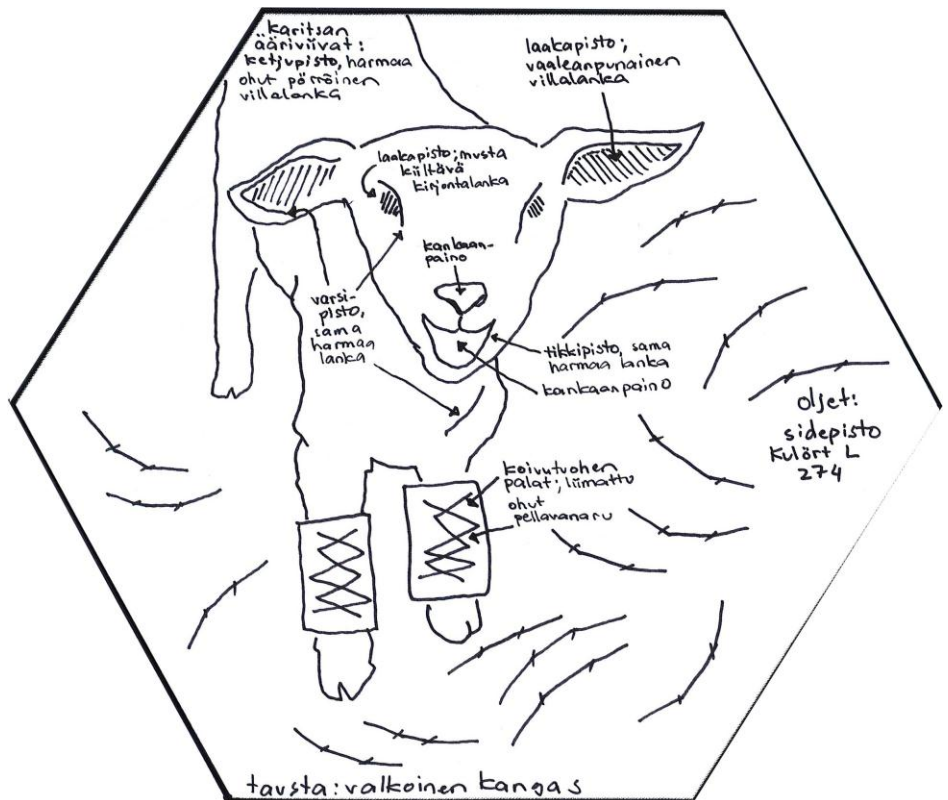 karitsan
ääriviivat:
ketjupisto, harmaa
ohut pörröinen
villalanka
laakapisto;
vaaleanpunainen
villalanka
laakapisto; musta
kiiltävä
kirjontalanka
kankaan-
paino
varsi-
pisto,
sama
harmaa
lanka
tikkipisto, sama
harmaa lanka
kankaanpaino
oljet:
sidepisto
Kulört L
274
koivutuohen
palat; liimattu
ohut
pellavanaru
tausta: valkoinen kangas